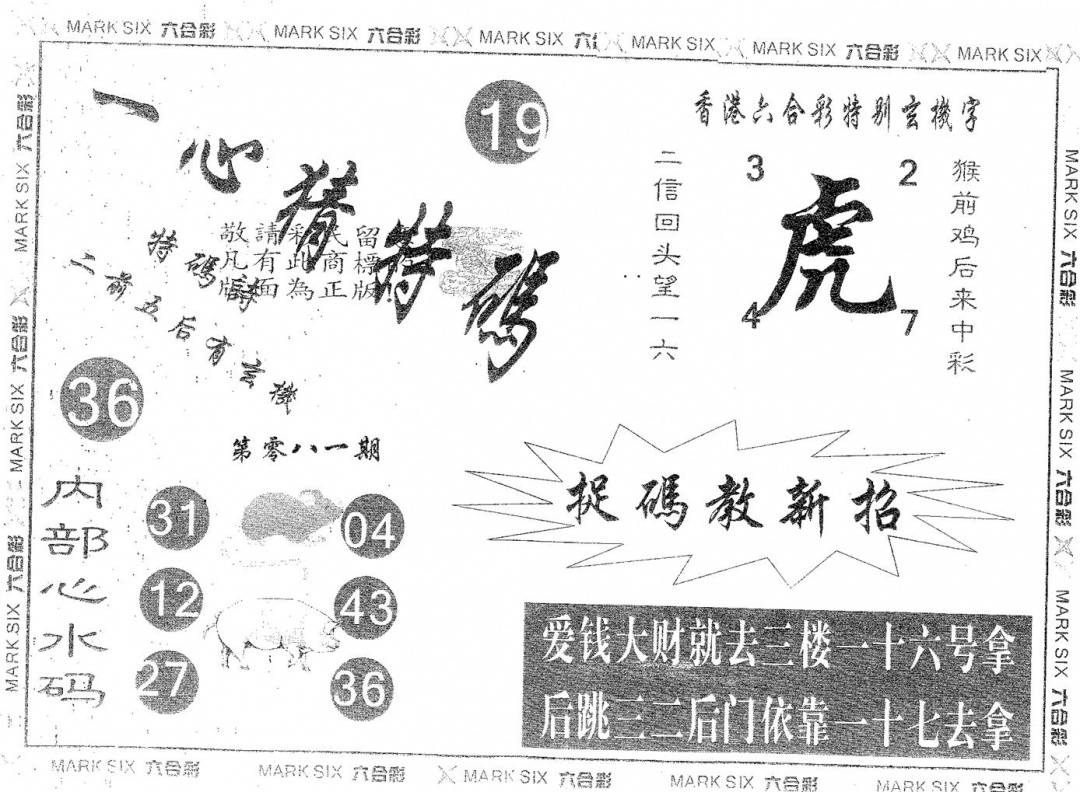 MARK SIX 六合彩 MARK SIX 六合彩 MARK SIX MARK SIX MARK SIX 六合彩 MARK SIX
一心猜特码
19
香港六合彩特别玄機字
二信回头望一六
3
2
虎
4
7
猴前鸡后来中彩
敬請彩民留
凡有此商標
版面為正版
特碼詩
二前五后有玄機
36
第零八一期
内部心水码
31
04
12
43
27
36
捉碼教新招
爱钱大财就去三楼一十六号拿
后跳三二后门依靠一十七去拿
MARK SIX 六合彩 MARK SIX 六合彩 MARK SIX 六合彩
MARK SIX 六合彩 MARK SIX 六合彩 MARK SIX 六合彩
MARK SIX 六合彩 MARK SIX 六合彩 MARK SIX 六合彩 MARK SIX 六合彩 MARK SIX 六合彩